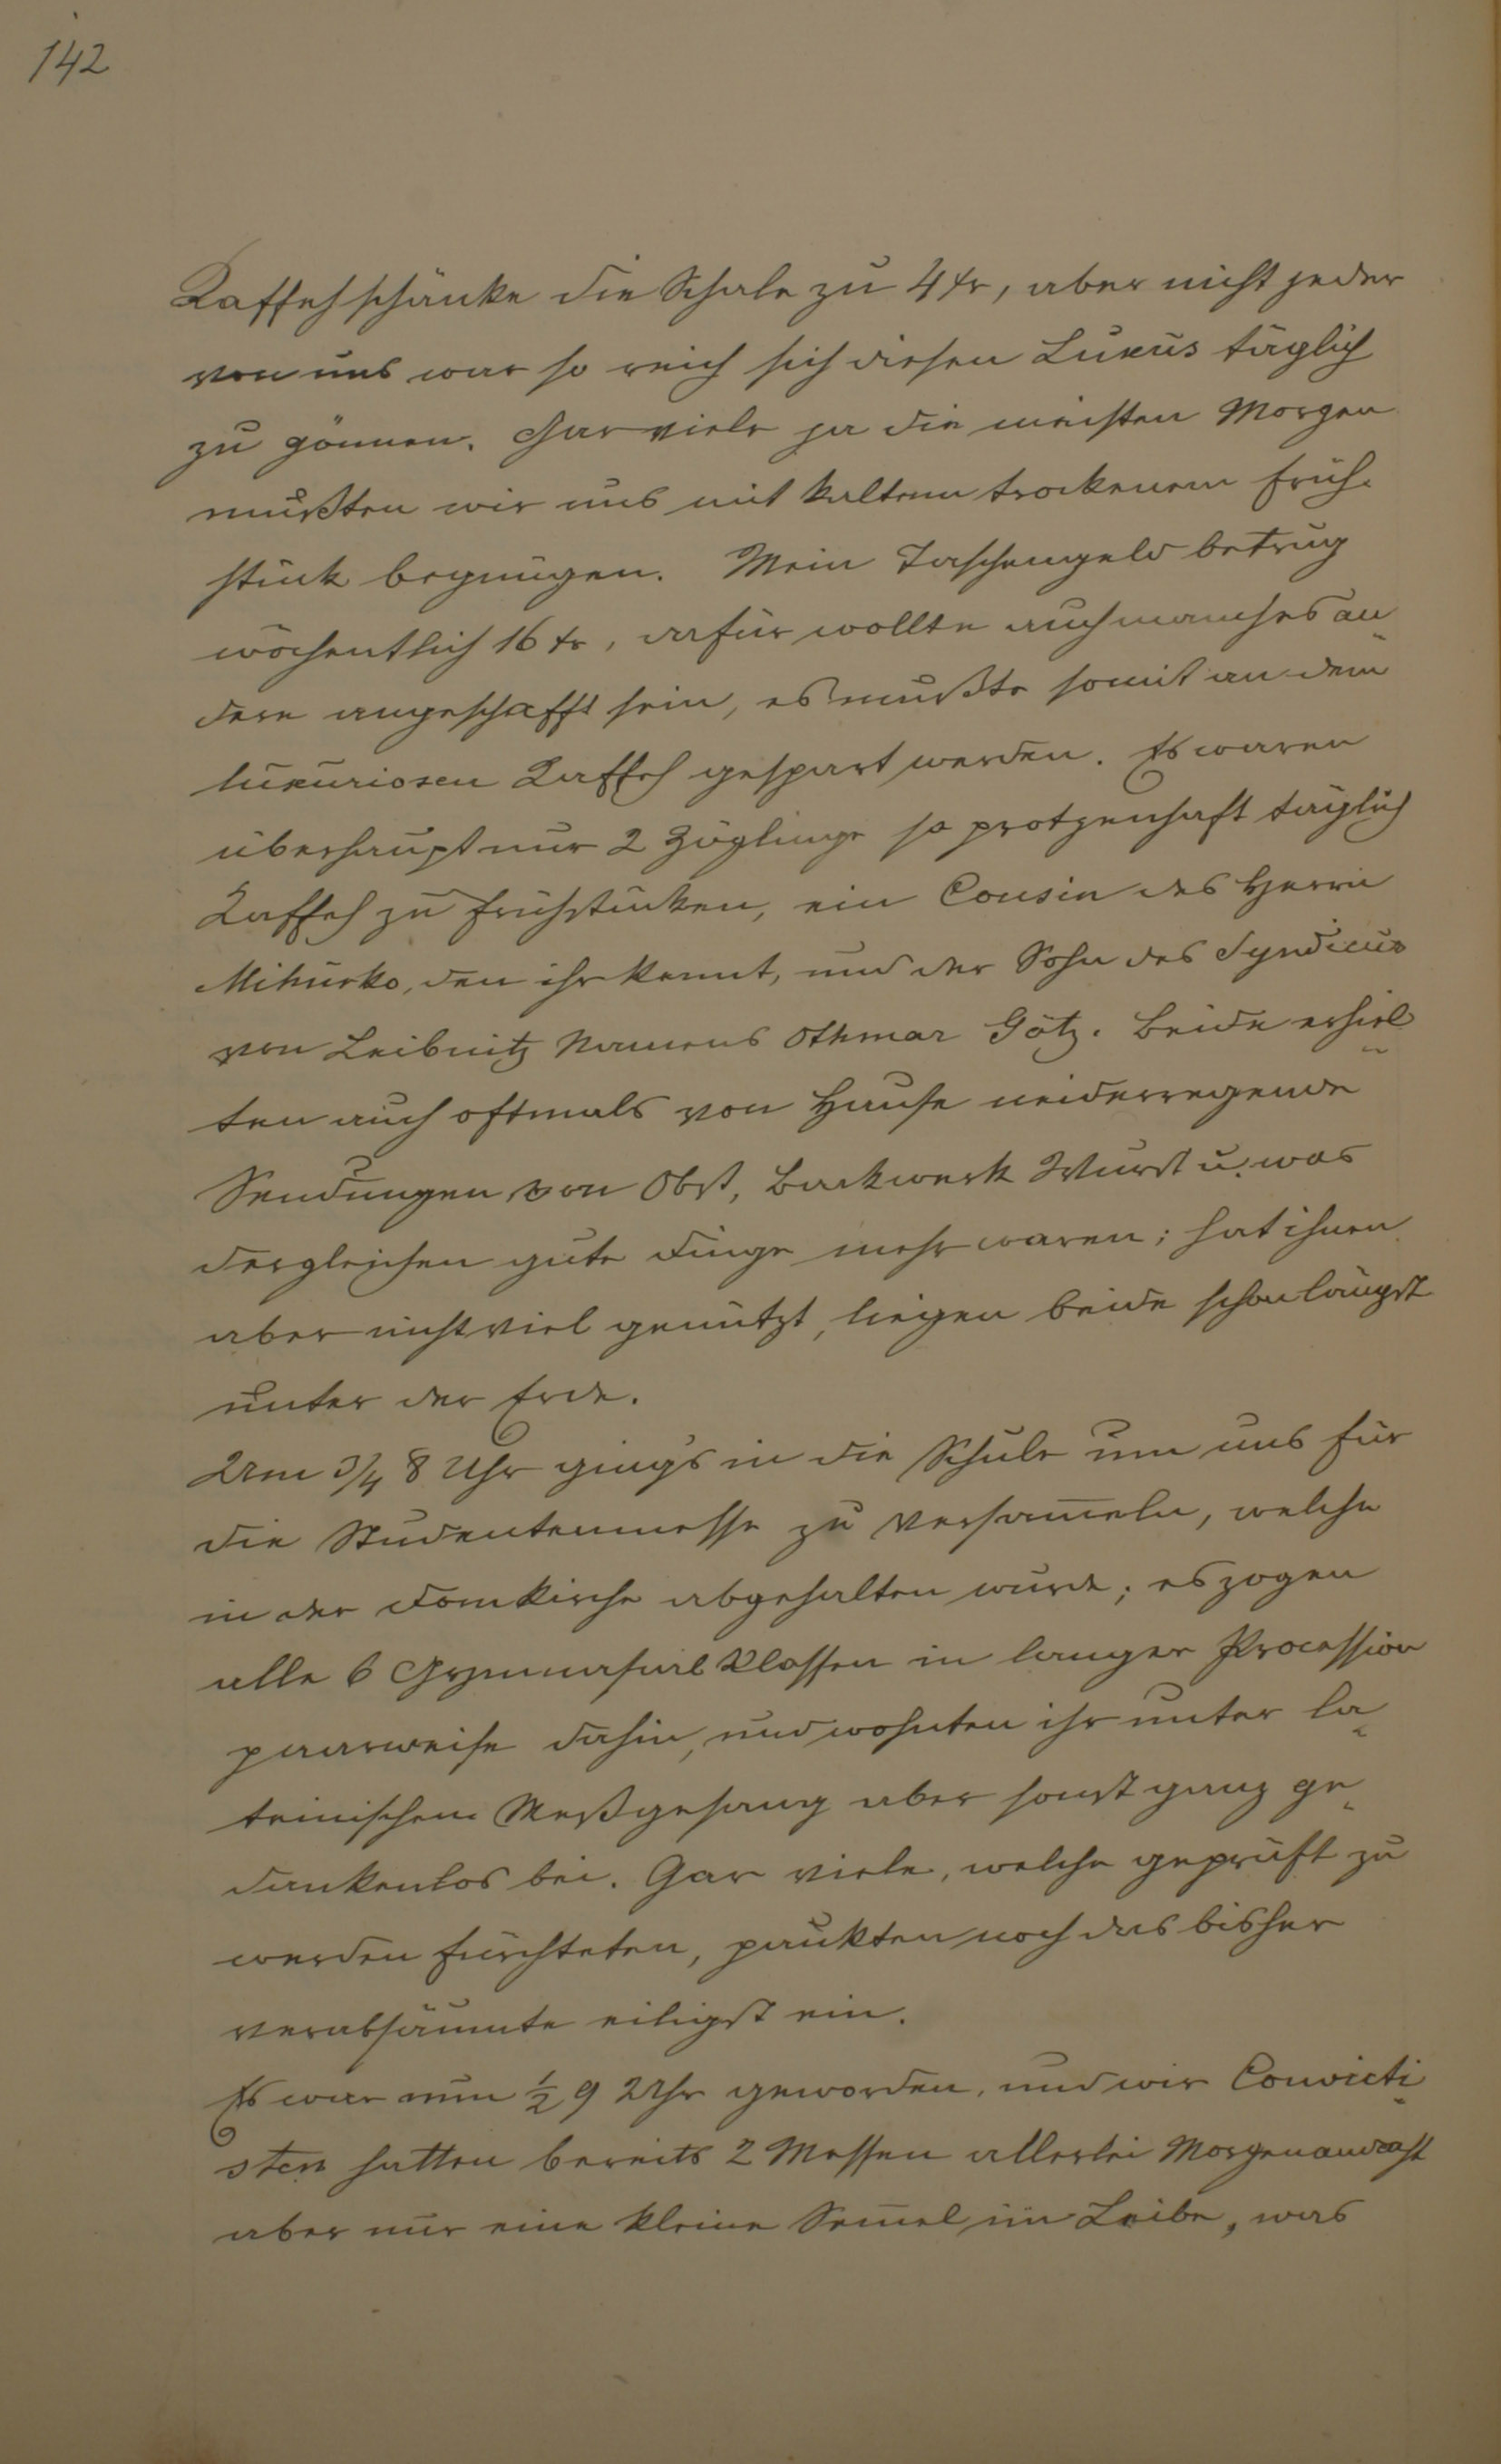 142
Kaffehschänke die Schale zu 4 kr, aber nicht jeder
von uns war so reich sich diesen Luxus täglich
zu gönnen. Gar viele ja die meisten Morgen
mußten wir uns mit kaltem trockenem Früh-
stück begnügen. Mein Taschengeld betrug
wöchentlich 16 kr, dafür wollte auch manches an-
dere angeschafft sein, es mußte somit an dem
luxuriosen Kaffeh gespart werden. Es waren
überhaupt nur 2 Zöglinge so protzenhaft täglich
Kaffeh zu frühstücken, ein Cousin des Herrn
Mihurko, den ihr kennt, und der Sohn des Syndicus
von Leibnitz Namens Othmar Götz. Beide erhiel-
ten auch oftmals von Hause neiderregende
Sendungen von Obst, Backwerk Wurst u. was
dergleichen gute Dinge mehr waren; hat ihnen
aber nicht viel genützt, liegen beide schon längst
unter der Erde.
Um 3/4 8 Uhr ging's in die Schule um uns für
die Studentenmesse zu versam̄eln, welche
in der Domkirche abgehalten wurde; es zogen
alle 6 Gymnasial Klassen in langer Procession
paarweise dahin, und wohnten ihr unter la-
teinischem Meßgesang aber sonst ganz ge-
dankenlos bei. Gar viele, welche geprüft zu
werden fürchteten, paukten noch das bisher
verabsäumte eiligst ein.
Es war nun ½ 9 Uhr geworden, und wir Convicti-
sten hatten bereits 2 Messen allerlei Morgenandacht
aber nur eine kleine Sem̄el im Leibe, was